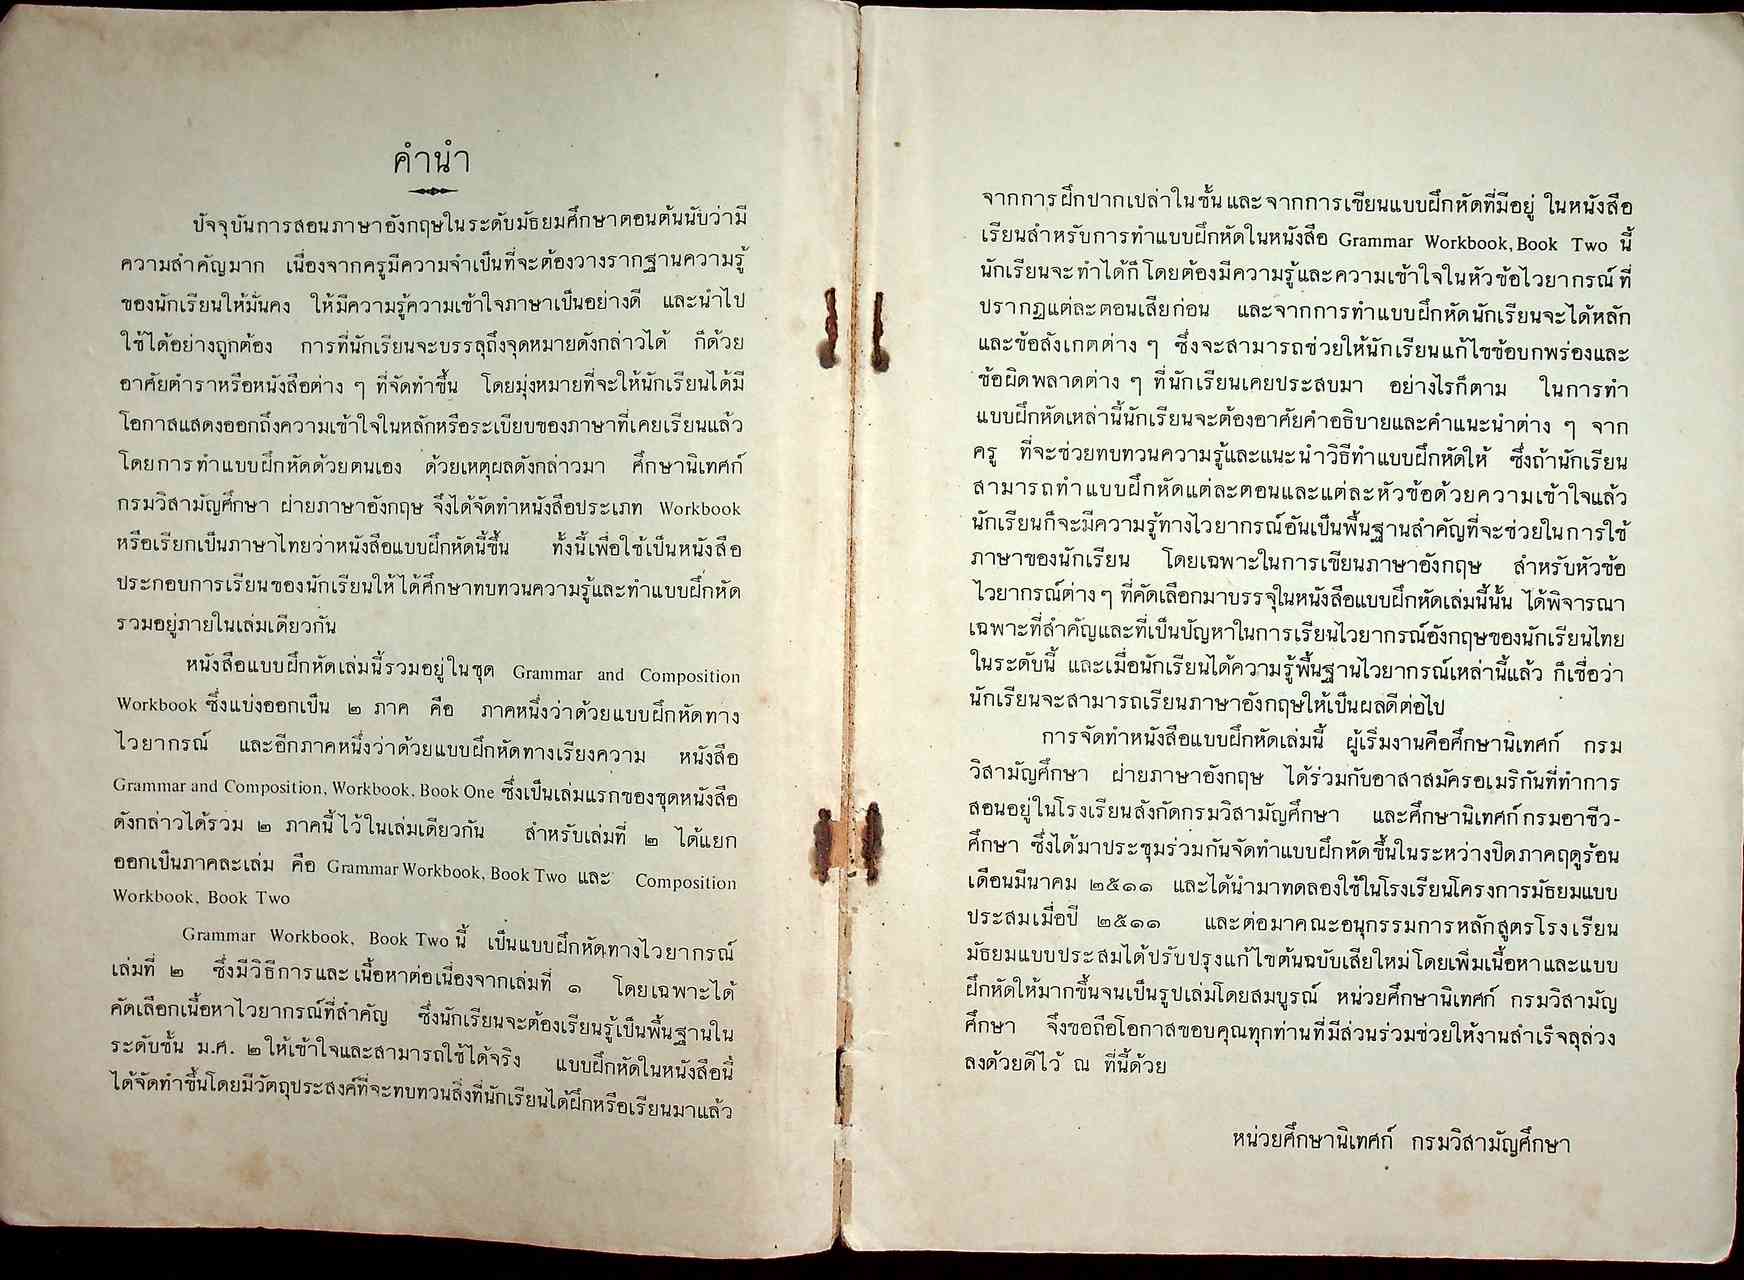 คำนำ
ปัจจุบันการสอนภาษาอังกฤษในระดับมัธยมศึกษาตอนต้นนับว่ามี
ความสำคัญมาก เนื่องจากครูมีความจำเป็นที่จะต้องวางรากฐานความรู้
ของนักเรียนให้มั่นคง ให้มีความรู้ความเข้าใจภาษาเป็นอย่างดี และนำไป
ใช้ได้อย่างถูกต้อง การที่นักเรียนจะบรรลุถึงจุดหมายดังกล่าวได้ ก็ด้วย
อาศัยตำราหรือหนังสือต่าง ๆ ที่จัดทำขึ้น โดยมุ่งหมายที่จะให้นักเรียนได้มี
โอกาสแสดงออกถึงความเข้าใจในหลักหรือระเบียบของภาษาที่เคยเรียนแล้ว
โดยการทำแบบฝึกหัดด้วยตนเอง ด้วยเหตุผลดังกล่าวมา ศึกษานิเทศก์
กรมวิสามัญศึกษา ฝ่ายภาษาอังกฤษ จึงได้จัดทำหนังสือประเภท Workbook
หรือเรียกเป็นภาษาไทยว่าหนังสือแบบฝึกหัดนี้ขึ้น ทั้งนี้เพื่อใช้เป็นหนังสือ
ประกอบการเรียนของนักเรียนให้ได้ศึกษาทบทวนความรู้และทำแบบฝึกหัด
รวมอยู่ภายในเล่มเดียวกัน
หนังสือแบบฝึกหัดเล่มนี้รวมอยู่ในชุด Grammar and Composition
Workbook ซึ่งแบ่งออกเป็น ๒ ภาค คือ ภาคหนึ่งว่าด้วยแบบฝึกหัดทาง
ไวยากรณ์ และอีกภาคหนึ่งว่าด้วยแบบฝึกหัดทางเรียงความ หนังสือ
Grammar and Composition, Workbook, Book One ซึ่งเป็นเล่มแรกของชุดหนังสือ
ดังกล่าวได้รวม ๒ ภาคนี้ไว้ในเล่มเดียวกัน สำหรับเล่มที่ ๒ ได้แยก
ออกเป็นภาคละเล่ม คือ Grammar Workbook, Book Two และ Composition
Workbook, Book Two
Grammar Workbook, Book Two นี้ เป็นแบบฝึกหัดทางไวยากรณ์
เล่มที่ ๒ ซึ่งมีวิธีการและเนื้อหาต่อเนื่องจากเล่มที่ ๑ โดยเฉพาะได้
คัดเลือกเนื้อหาไวยากรณ์ที่สำคัญ ซึ่งนักเรียนจะต้องเรียนรู้เป็นพื้นฐานใน
ระดับชั้น ม.ศ. ๒ ให้เข้าใจและสามารถใช้ได้จริง แบบฝึกหัดในหนังสือนี้
ได้จัดทำขึ้นโดยมีวัตถุประสงค์ที่จะทบทวนสิ่งที่นักเรียนได้ฝึกหรือเรียนมาแล้ว
จากการฝึกปากเปล่าในชั้นและจากการเขียนแบบฝึกหัดที่มีอยู่ ในหนังสือ
เรียนสำหรับการทำแบบฝึกหัดในหนังสือ Grammar Workbook, Book Two นี้
นักเรียนจะทำได้ก็โดยต้องมีความรู้และความเข้าใจในหัวข้อไวยากรณ์ที่
ปรากฏแต่ละตอนเสียก่อน และจากการทำแบบฝึกหัดนักเรียนจะได้หลัก
และข้อสังเกตต่าง ๆ ซึ่งจะสามารถช่วยให้นักเรียนแก้ไขข้อบกพร่องและ
ข้อผิดพลาดต่าง ๆ ที่นักเรียนเคยประสบมา อย่างไรก็ตาม ในการทำ
แบบฝึกหัดเหล่านี้นักเรียนจะต้องอาศัยคำอธิบายและคำแนะนำต่าง ๆ จาก
ครู ที่จะช่วยทบทวนความรู้และแนะนำวิธีทำแบบฝึกหัดให้ ซึ่งถ้านักเรียน
สามารถทำแบบฝึกหัดแต่ละตอนและแต่ละหัวข้อด้วยความเข้าใจแล้ว
นักเรียนก็จะมีความรู้ทางไวยากรณ์อันเป็นพื้นฐานสำคัญที่จะช่วยในการใช้
ภาษาของนักเรียน โดยเฉพาะในการเขียนภาษาอังกฤษ สำหรับหัวข้อ
ไวยากรณ์ต่างๆ ที่คัดเลือกมาบรรจุในหนังสือแบบฝึกหัดเล่มนี้นั้น ได้พิจารณา
เฉพาะที่สำคัญและที่เป็นปัญหาในการเรียนไวยากรณ์อังกฤษของนักเรียนไทย
ในระดับนี้ และเมื่อนักเรียนได้ความรู้พื้นฐานไวยากรณ์เหล่านี้แล้ว ก็เชื่อว่า
นักเรียนจะสามารถเรียนภาษาอังกฤษให้เป็นผลดีต่อไป
การจัดทำหนังสือแบบฝึกหัดเล่มนี้ ผู้เริ่มงานคือศึกษานิเทศก์ กรม
วิสามัญศึกษา ฝ่ายภาษาอังกฤษ ได้ร่วมกับอาสาสมัครอเมริกันที่ทำการ
สอนอยู่ในโรงเรียนสังกัดกรมวิสามัญศึกษา และศึกษานิเทศก์กรมอาชีว-
ศึกษา ซึ่งได้มาประชุมร่วมกันจัดทำแบบฝึกหัดขึ้นในระหว่างปิดภาคฤดูร้อน
เดือนมีนาคม ๒๕๑๑ และได้นำมาทดลองใช้ในโรงเรียนโครงการมัธยมแบบ
ประสมเมื่อปี ๒๕๑๑ และต่อมาคณะอนุกรรมการหลักสูตรโรงเรียน
มัธยมแบบประสมได้ปรับปรุงแก้ไขต้นฉบับเสียใหม่โดยเพิ่มเนื้อหาและแบบ
ฝึกหัดให้มากขึ้นจนเป็นรูปเล่มโดยสมบูรณ์ หน่วยศึกษานิเทศก์ กรมวิสามัญ
ศึกษา จึงขอถือโอกาสขอบคุณทุกท่านที่มีส่วนร่วมช่วยให้งานสำเร็จลุล่วง
ลงด้วยดีไว้ ณ ที่นี้ด้วย
หน่วยศึกษานิเทศก์ กรมวิสามัญศึกษา